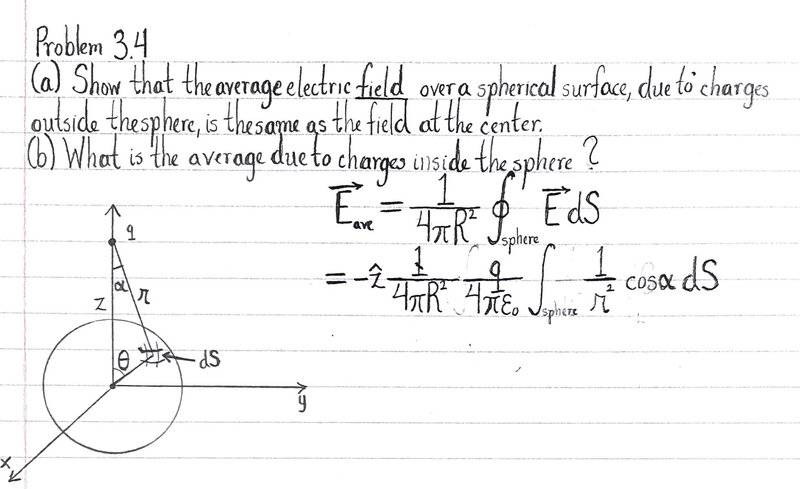 Problem 3.4
(a) Show that the average electric field over a spherical surface, due to charges
outside the sphere, is the same as the field at the center.
(b) What is the average due to charges inside the sphere?
E⃗_ave = 1/(4πR²) ∮_sphere E⃗ dS
= -ẑ 1/(4πR²) q/(4πε₀) ∫_sphere 1/r² cosα dS
q
α
r
z
θ
dS
y
x